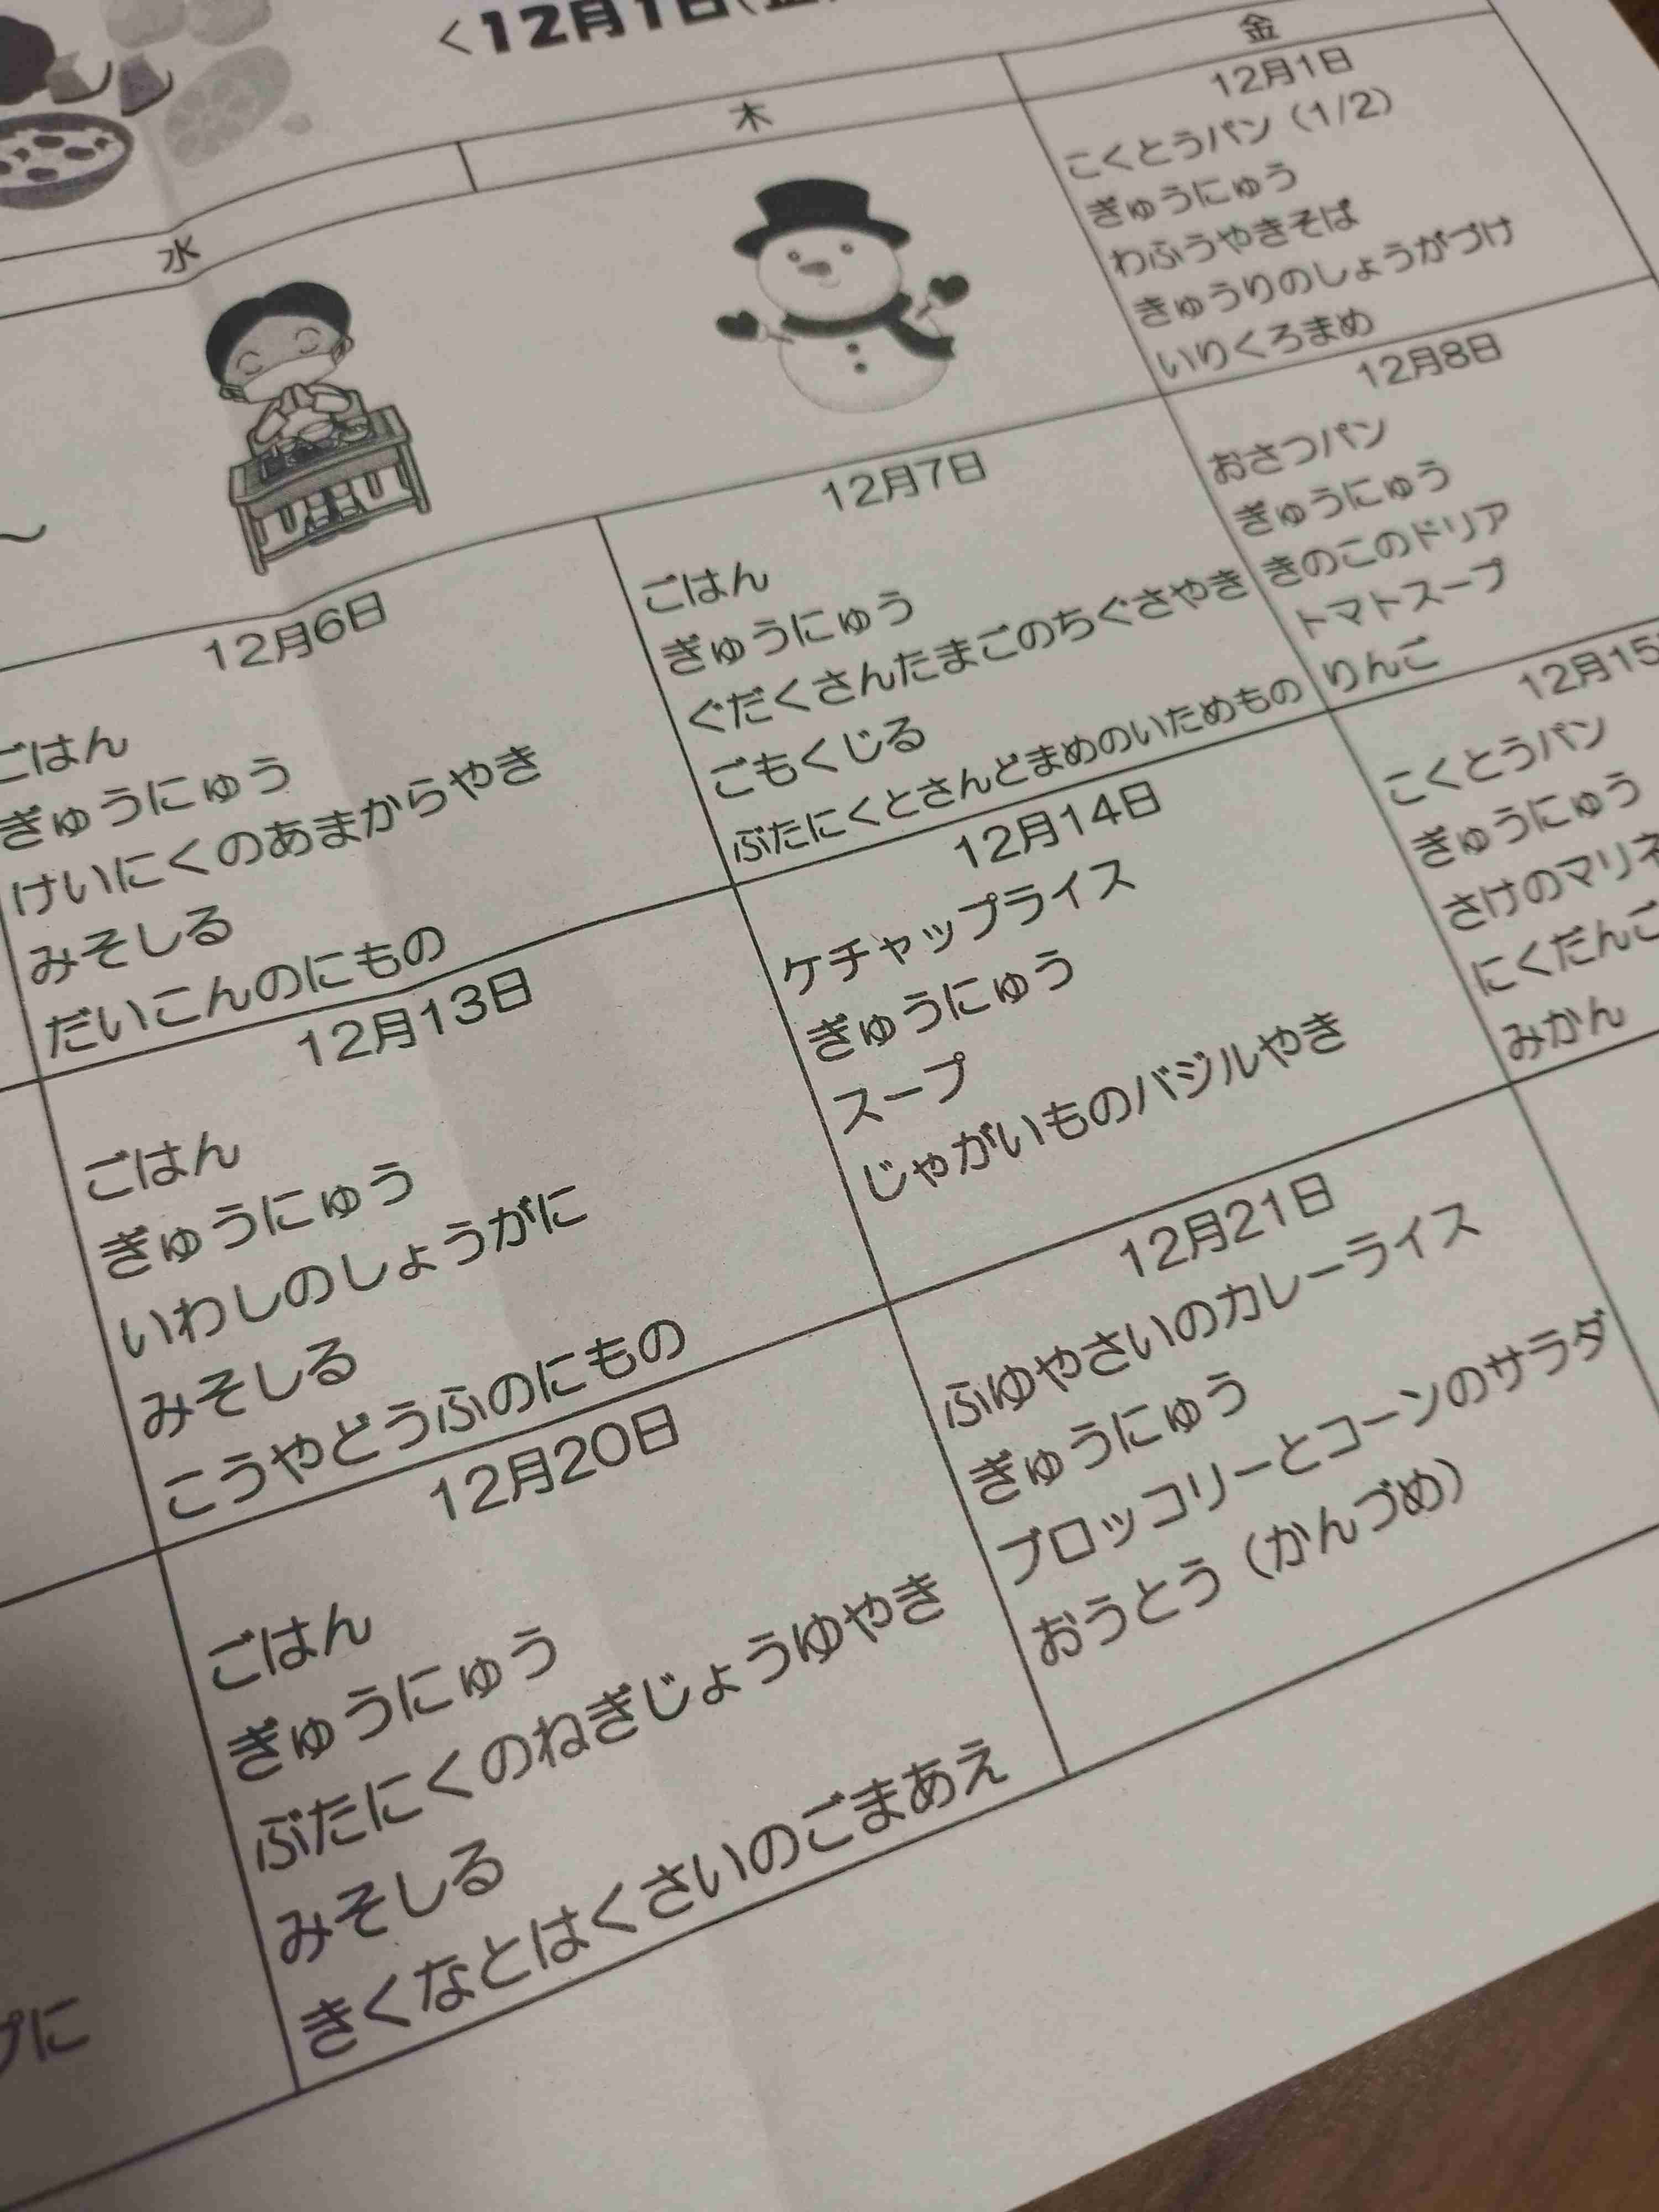 <12月1日
水
木
金
12月1日
こくとうパン（1/2）
ぎゅうにゅう
わふうやきそば
きゅうりのしょうがづけ
いりくろまめ
12月6日
ごはん
ぎゅうにゅう
けいにくのあまからやき
みそしる
だいこんのにもの
12月7日
ごはん
ぎゅうにゅう
ぐだくさんたまごのちぐさやき
ごもくじる
ぶたにくとさんどまめのいためもの
12月8日
おさつパン
ぎゅうにゅう
きのこのドリア
トマトスープ
りんご
12月13日
ごはん
ぎゅうにゅう
いわしのしょうがに
みそしる
こうやどうふのにもの
12月14日
ケチャップライス
ぎゅうにゅう
スープ
じゃがいものバジルやき
12月15
こくとうパン
ぎゅうにゅう
さけのマリネ
にくだんご
みかん
12月20日
ごはん
ぎゅうにゅう
ぶたにくのねぎじょうゆやき
みそしる
きくなとはくさいのごまあえ
12月21日
ふゆやさいのカレーライス
ぎゅうにゅう
ブロッコリーとコーンのサラダ
おうとう（かんづめ）